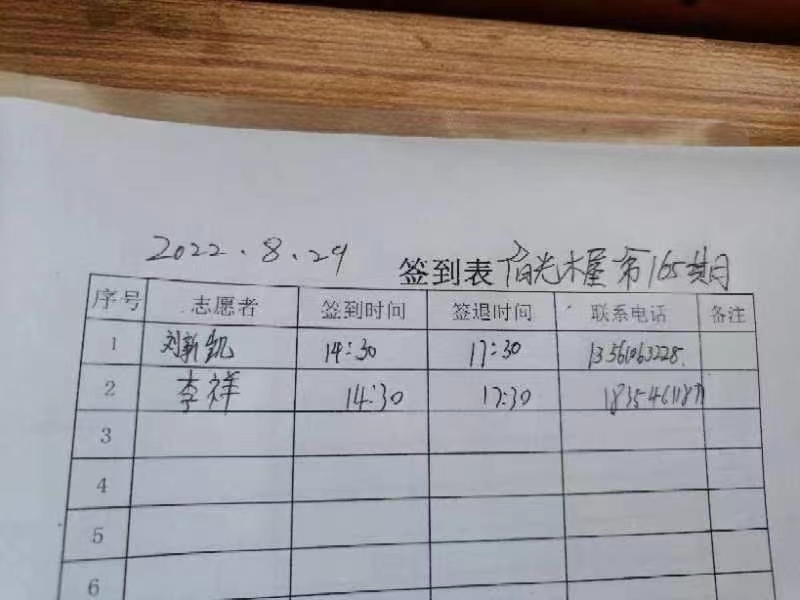 2022.8.29
签到表 阳光木屋第165期
序号 志愿者 签到时间 签退时间 联系电话 备注
1 刘新凯 14:30 17:30 13561063228
2 李祥 14:30 17:30
3
4
5
6